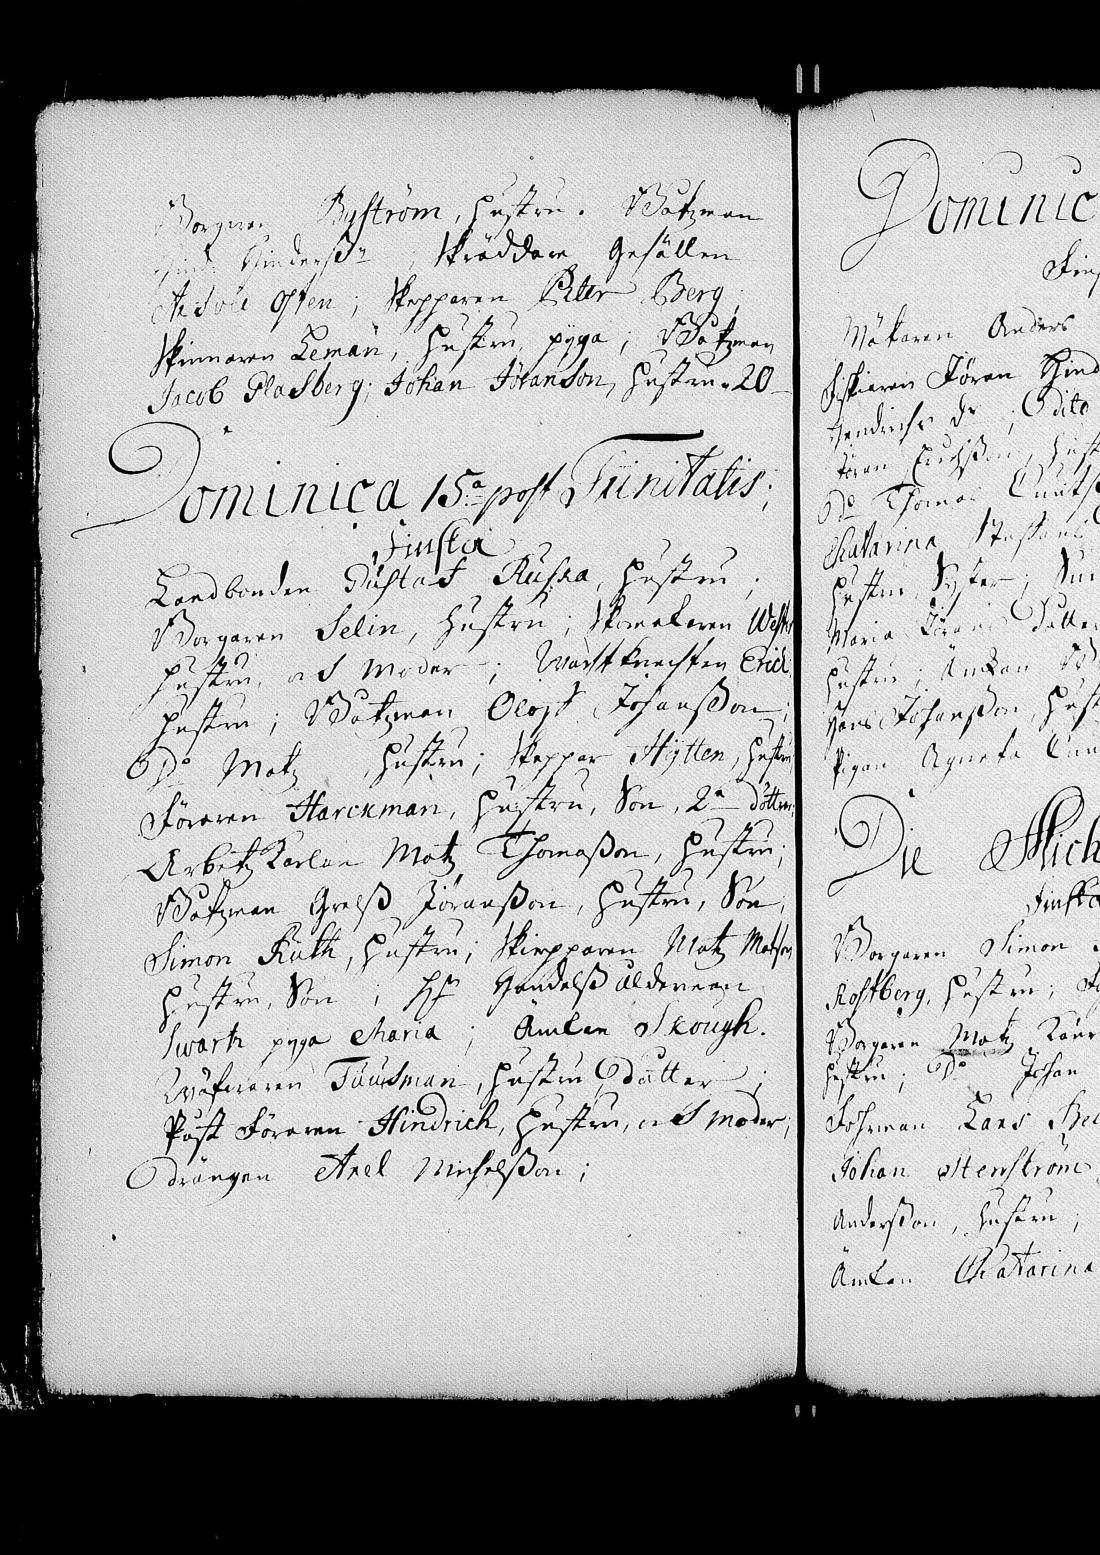 Borgaren Byström, hustru. Båtzman
Hind: Hinderß: , Skräddare Gesällen
; Skepparen Peter Berg,
Skinnaren Leman, hustru, pyga; Båtzman
Jacob Glasberg; Johan Johanson, hustru. 20
Dominica 15.a post Trinitatis;
Finska
Landbonden Gustaf Russa, hustru;
Borgaren Selin, hustru; Skomakaren
hustru, och Moder; Wachtknechten Erich
hustru; Båtzman Oloff Johanßon;
Do Matz , hustru; Skeppar Hÿtten, hustru
Föraren Harckman, hustru, Son, 2a döttrar,
Arbetz Karlen Matz Thomaßon, hustru;
Båtzman Grelß Jöranßon, hustru, Son,
Simon Kuth, hustru; Skepparen Matz Matson
hustru, Son ; Hr Handelß ålderman
Swartz pyga Maria; Änkan Skough.
Tuusman, hustru dotter;
Påst Föraren Hindrich, hustru, och Moder;
drängen Axel Michelßon;
Dominic
Fins
Mätaren Anders
Fiskaren Jöran Hind
Hendrichs dr ; Dito
Jöran Erichßon, hust
Do Thomas
Chatarina Staffans
hustru, Syster;
Maria Jörans Dotter
hustru, Änkan
Hans Johanßon, hust
Pigan Agneta
Die Mich
Finska
Borgaren Simon
Rostberg, hustru;
Borgaren Matz
hustru; Do Johan
Fohrman Lars
Johan Stenström
Anderßon, hustru;
Änkan Chatarina